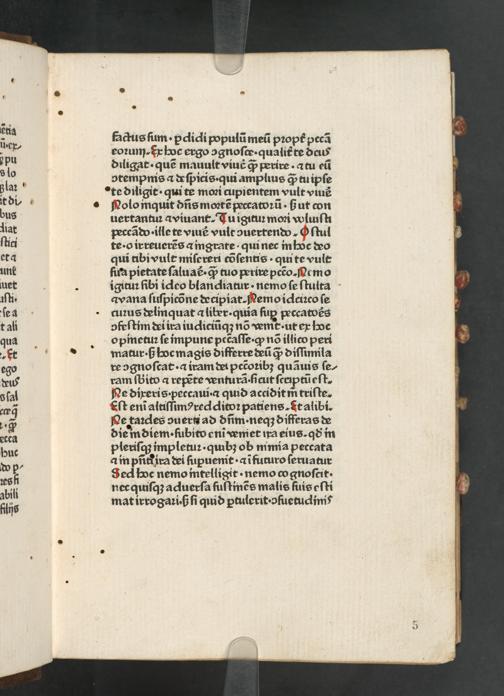 factus sum · ꝑdidi populū meū propt̄ pccā
eorum · Ex hoc ergo ɔgnosce · qualit̄ te deus
diligat · quē mauult viuē ꝙ perire · ⁊ tu eū
ɔtempnis ⁊ despicis · qui amplius ꝙ tu ipse
te diligit · qui te mori cupientem vult viuē
Nolo inquit dn̄s mortē peccatoꝝ · s̄ ut con
uertantur ⁊ viuant · Tu igitur mori voluisti
peccādo · ille te viuē vult ɔuertendo · O stul
te · o irreuerēs ⁊ ingrate · qui nec in hoc deo
qui tibi vult misereri cōsentis · qui te vult
sua pietate saluaē · ꝙ tuo perire pc̄cō · Nemo
igitur sibi ideo blandiatur · nemo se stulta
⁊ vana suspicōne decipiat · Nemo idcirco se
curus delinquat ⁊ liber · quia suꝑ peccatoēs
ɔfestim dei ira iudiciūqꝫ nō venit · ut ex hoc
opinetur se impune pccasse · ꝙ nō illico peri
matur · s̄ hoc magis differre deū ꝙ dissimila
re ɔgnoscat · ⁊ iram dei pccōribꝫ quāuis se-
ram sb̄ito ⁊ repēte venturā · sicut scriptū est ·
Ne dixeris · peccaui · ⁊ quid accidit m̄ triste ·
Est eni altissimꝰ redditor patiens · Et alibi ·
Ne tardes ɔuerti ad dn̄m · neqꝫ differas de
die in diem · subito eni veniet ira eius · qd̄ in
plerisqꝫ impletur · quibꝫ ob nimia peccata
⁊ in pn̄ti ira dei suꝑuenit · ⁊ ī futuro seruatur
Sed hoc nemo intelligit · nemo cognoscit ·
nec quisqꝫ aduersa sustinēs malis suis esti
mat irrogari · s̄ si quid ꝑtulerit · ɔsuetudinis
5